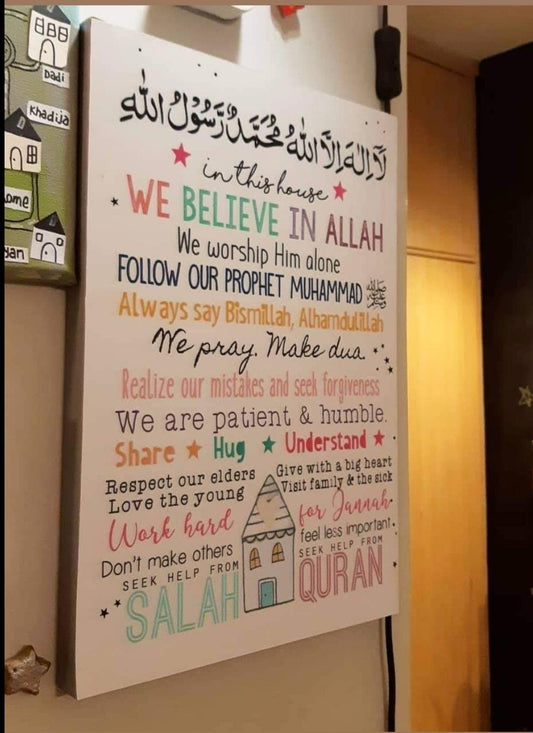 Dadi
Khadija
ome
yan
لَا إِلٰهَ إِلَّا اللهُ مُحَمَّدٌ رَّسُوْلُ اللهِ
in this house
WE BELIEVE IN ALLAH
We worship Him alone
FOLLOW OUR PROPHET MUHAMMAD ﷺ
Always say Bismillah, Alhamdulillah
We pray. Make dua.
Realize our mistakes and seek forgiveness
We are patient & humble.
Share Hug Understand
Respect our elders Give with a big heart
Love the young Visit family & the sick
Work hard for Jannah
Don't make others feel less important
SEEK HELP FROM SEEK HELP FROM
SALAH QURAN